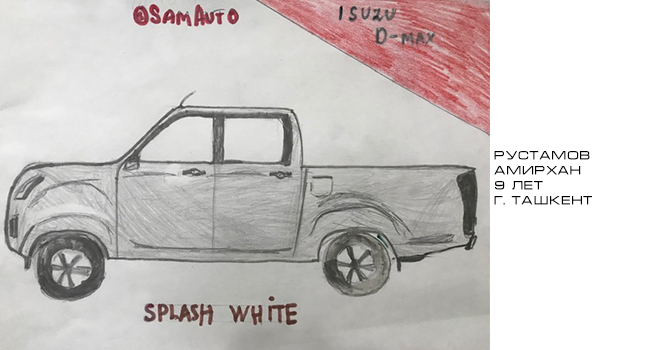 @SAMAUTO
ISUZU
D-MAX
SPLASH WHITE
РУСТАМОВ
АМИРХАН
9 ЛЕТ
Г. ТАШКЕНТ